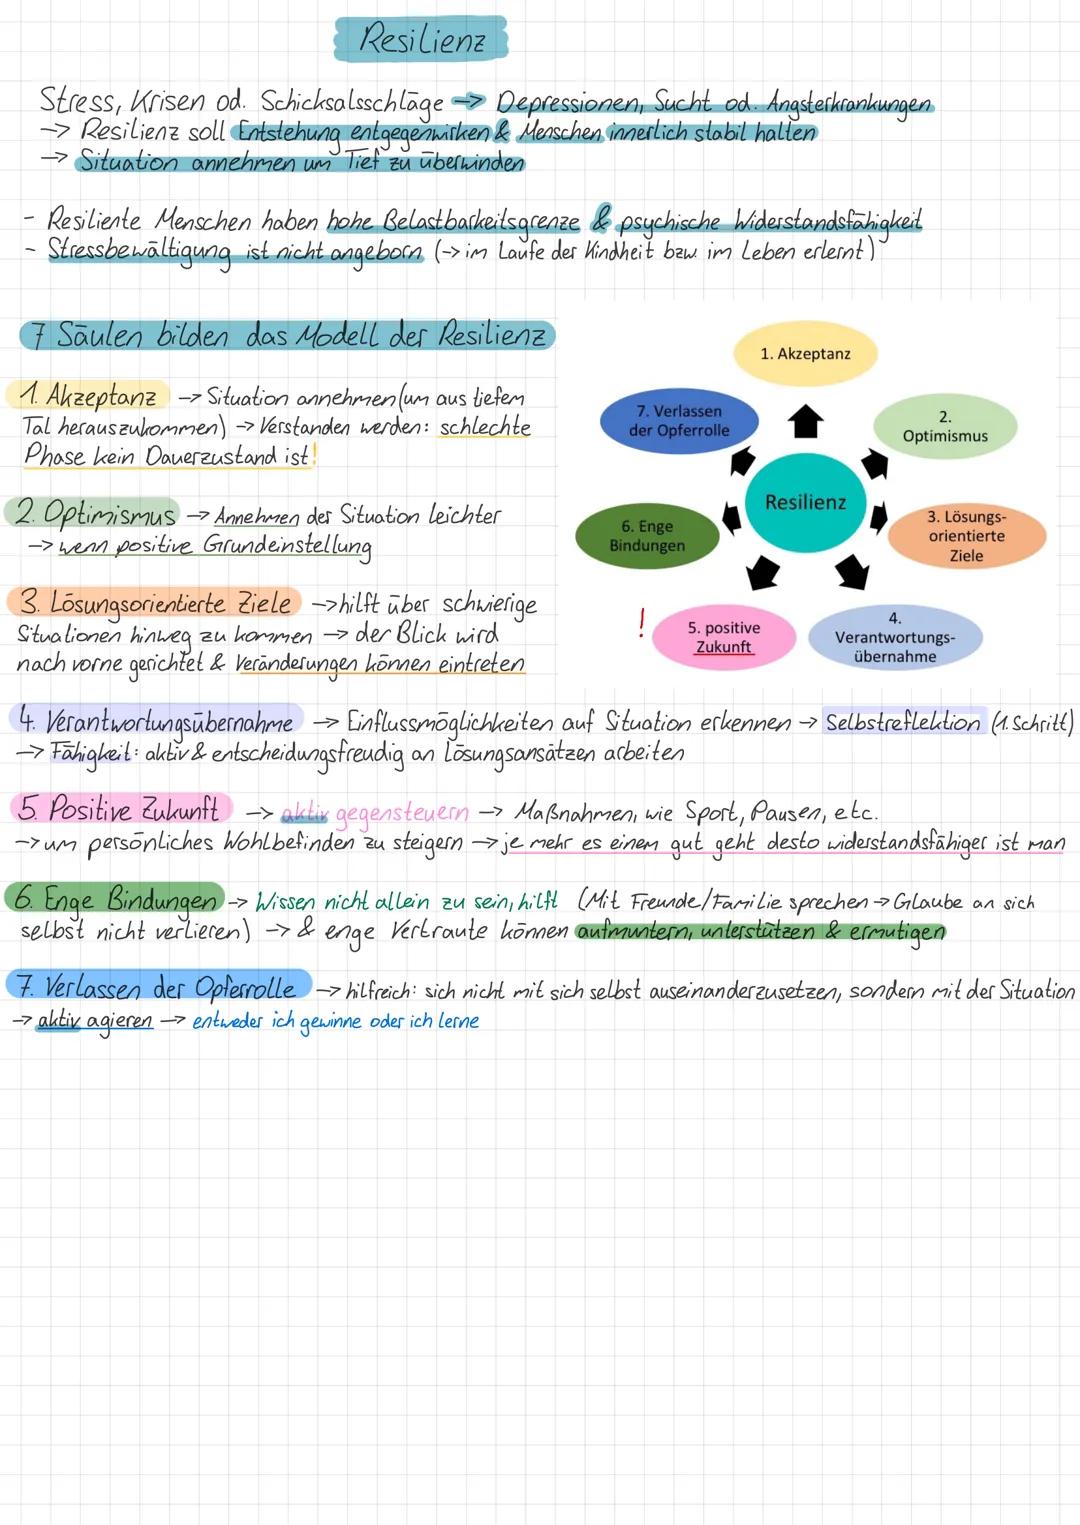 Resilienz
Stress, Krisen od. Schicksalsschläge → Depressionen, Sucht od. Angsterkrankungen
→ Resilienz soll Entstehung entgegenwirken & Menschen innerlich stabil halten
→ Situation annehmen um Tief zu überwinden
- Resiliente Menschen haben hohe Belastbarkeitsgrenze & psychische Widerstandsfähigkeit
- Stressbewältigung ist nicht angeborn (→ im Laufe der Kindheit bzw. im Leben erlernt)
7 Säulen bilden das Modell der Resilienz
1. Akzeptanz → Situation annehmen (um aus tiefem
Tal herauszukommen) → Verstanden werden: schlechte
Phase kein Dauerzustand ist!
2. Optimismus → Annehmen der Situation leichter
→ wenn positive Grundeinstellung
3. Lösungsorientierte Ziele → hilft über schwierige
Situationen hinweg zu kommen → der Blick wird
nach vorne gerichtet & Veränderungen können eintreten
1. Akzeptanz
7. Verlassen
der Opferrolle
2.
Optimismus
Resilienz
6. Enge
Bindungen
3. Lösungs-
orientierte
Ziele
! 5. positive
Zukunft
4.
Verantwortungs-
übernahme
4. Verantwortungsübernahme → Einflussmöglichkeiten auf Situation erkennen → Selbstreflektion (1. Schritt)
→ Fähigkeit: aktiv & entscheidungsfreudig an Lösungsansätzen arbeiten
5. Positive Zukunft → aktiv gegensteuern → Maßnahmen, wie Sport, Pausen, etc.
→ um persönliches Wohlbefinden zu steigern → je mehr es einem gut geht desto widerstandsfähiger ist man
6. Enge Bindungen → Wissen nicht allein zu sein, hilft (Mit Freunde/Familie sprechen → Glaube an sich
selbst nicht verlieren) → & enge Vertraute können aufmuntern, unterstützen & ermutigen
7. Verlassen der Opferrolle → hilfreich: sich nicht mit sich selbst auseinanderzusetzen, sondern mit der Situation
→ aktiv agieren → entweder ich gewinne oder ich lerne